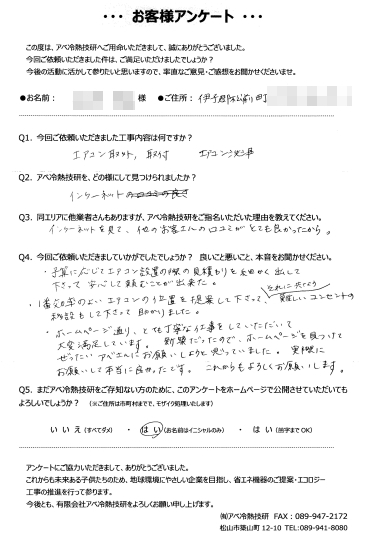 ・・・ お客様アンケート ・・・
この度は、アベ冷熱技研へご用命いただきまして、誠にありがとうございました。
今回ご依頼いただきました件は、ご満足いただけましたでしょうか？
今後の活動に活かして参りたいと思いますので、率直なご意見・ご感想をお聞かせくださいませ。
●お名前： 様 ●ご住所： 伊予郡松前町
Q1．今回ご依頼いただきました工事内容は何ですか？
エアコン取外し、取付 エアコン洗浄
Q2．アベ冷熱技研を、どの様にして見つけられましたか？
インターネットの口コミの良さ
Q3．同エリアに他業者さんもありますが、アベ冷熱技研をご指名いただいた理由を教えてください。
インターネットを見て、他のお客さんの口コミがとても良かったから。
Q4．今回ご依頼いただきましていかがでしたでしょうか？ 良いこと悪いこと、本音をお聞かせください。
・予算に応じてエアコン設置の際の見積もりを細かく出して
下さって安心して頼むことが出来た。
それに伴なう
・1番効率のよいエアコンの位置を提案して下さって、難しいコンセントの
移設もして下さって助かりました。
・ホームページ通り、とても丁寧な仕事をしていただいて
大変満足しています。 新築だったので、ホームページを見つけて
ぜったいアベさんにお願いしようと思っていました。実際に
お願いして本当に良かったです。 これからもよろしくお願いします。
Q5．まだアベ冷熱技研をご存知ない方のために、このアンケートをホームページで公開させていただいても
よろしいでしょうか？ （※ご住所は市町村までで、モザイク処理いたします）
いいえ（すべてダメ） ・ はい（お名前はイニシャルのみ） ・ はい（苗字までOK）
アンケートにご協力いただきまして、ありがとうございました。
これからも未来ある子供たちのため、地球環境にやさしい企業を目指し、省エネ機器のご提案・エコロジー
工事の推進を行って参ります。
今後とも、有限会社アベ冷熱技研をよろしくお願い申し上げます。
㈲アベ冷熱技研 FAX：089-947-2172
松山市築山町 12-10 TEL:089-941-8080